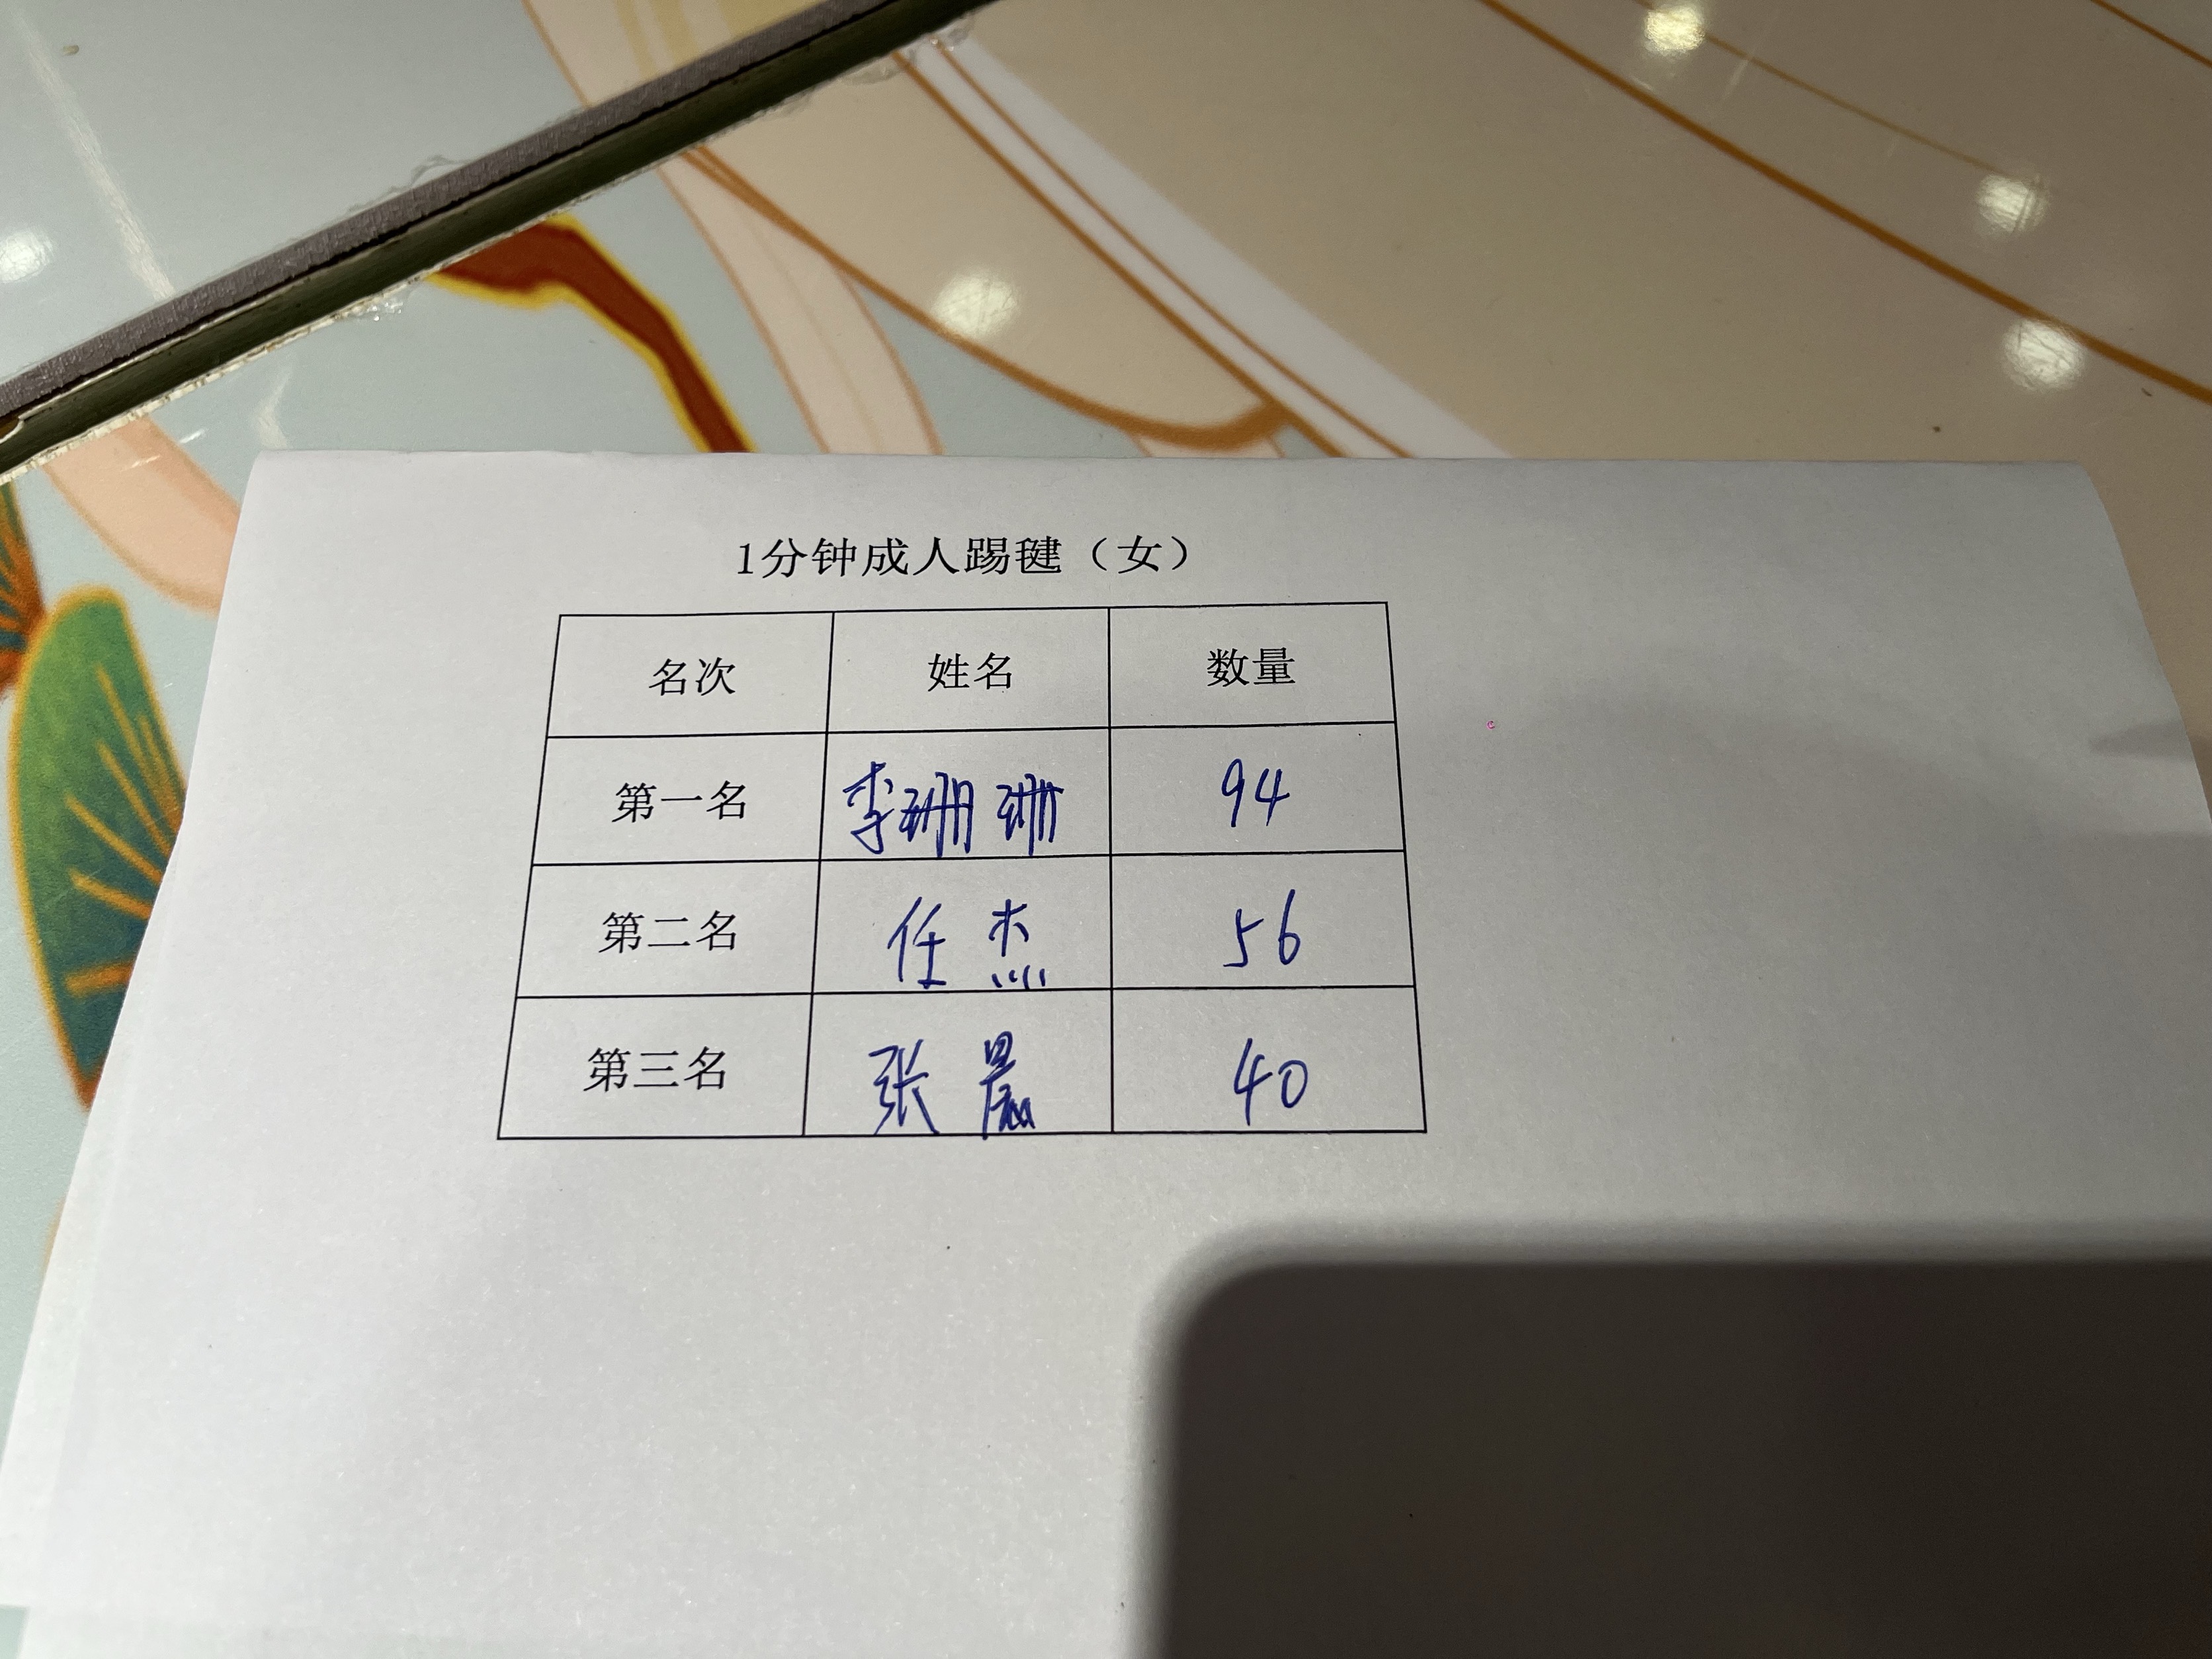 1分钟成人踢毽（女）
名次 姓名 数量
第一名 李珊珊 94
第二名 任杰 56
第三名 张晨 40